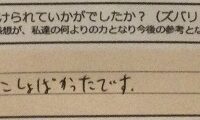 けられていかがでしたか？（ズバリ
感想が、私達の何よりの力となり今後の参考とな
こしょばかったです.